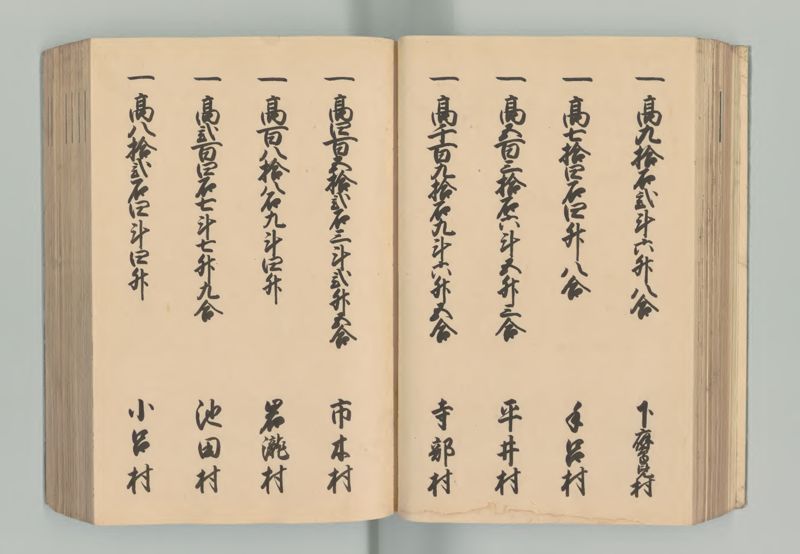 一 高九拾石弐斗六升八合 下麻生見村
一 高七拾四石四升八合 手呂村
一 高五百三拾石六斗五升三合 平井村
一 高千百九拾石九斗六升五合 寺部村
一 高四百五拾弐石三斗弐升五合 市木村
一 高百八拾八石九斗四升 岩瀧村
一 高弐百四石七斗七升九合 池田村
一 高八拾弐石四斗四升 小呂村